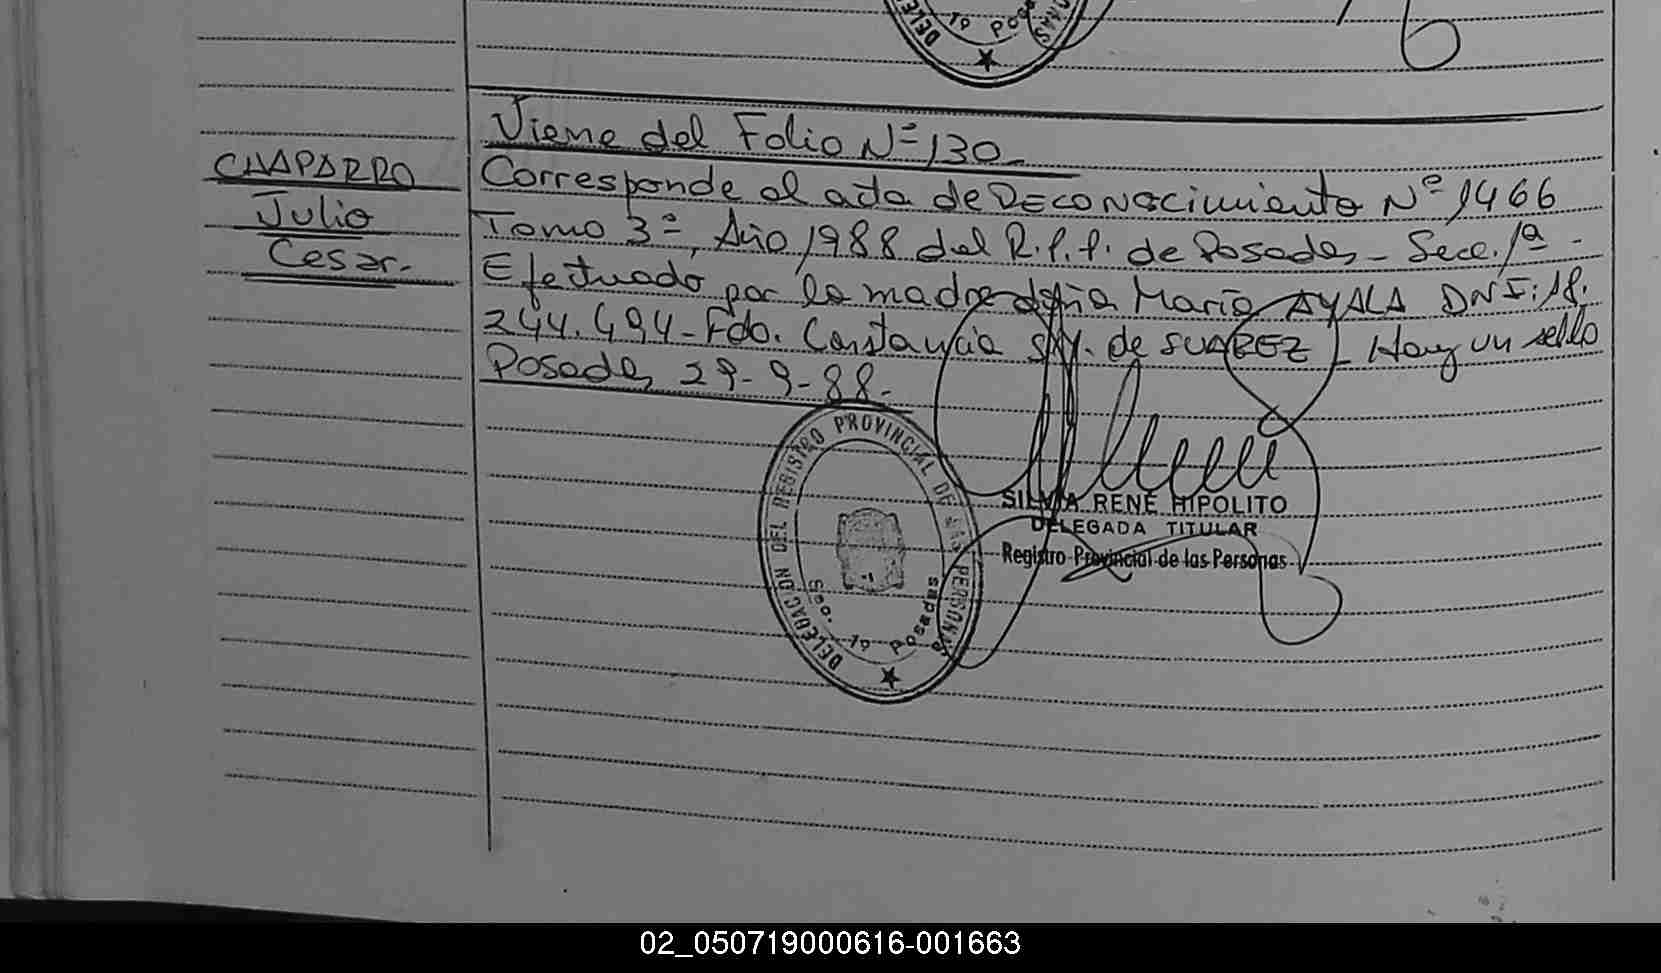 Viene del Folio Nº 130-
CHAPARRO
Julio
Cesar.-
Corresponde al acta de RECONOCIMIENTO Nº 1466
Tomo 3º, Año 1988 del R.P.P. de Posadas - Secc. 1ª -
Efectuado por la madre doña María AYALA DNI: 18.
244.494- Fdo. Constancia de SUAREZ - Hay un sello
Posadas 29-9-88-
DELEGACION DEL REGISTRO PROVINCIAL DE LAS PERSONAS
Sec. 1a Posadas
SILVIA RENE HIPOLITO
DELEGADA TITULAR
Registro Provincial de las Personas
02_050719000616-001663